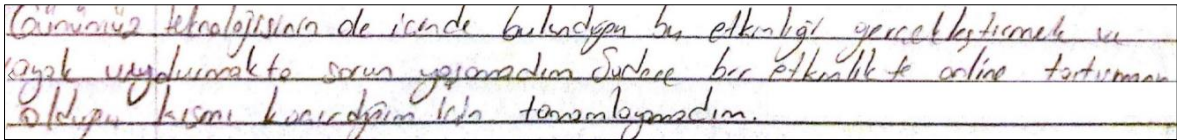 Günümüz teknolojisinin de içinde bulunduğu bu etkinliği gerçekleştirmek ve
ayak uydurmakta sorun yaşamadım Sadece bir etkinlikte online tartışmanın
olduğu kısmı kaçırdığım için tamamlayamadım.